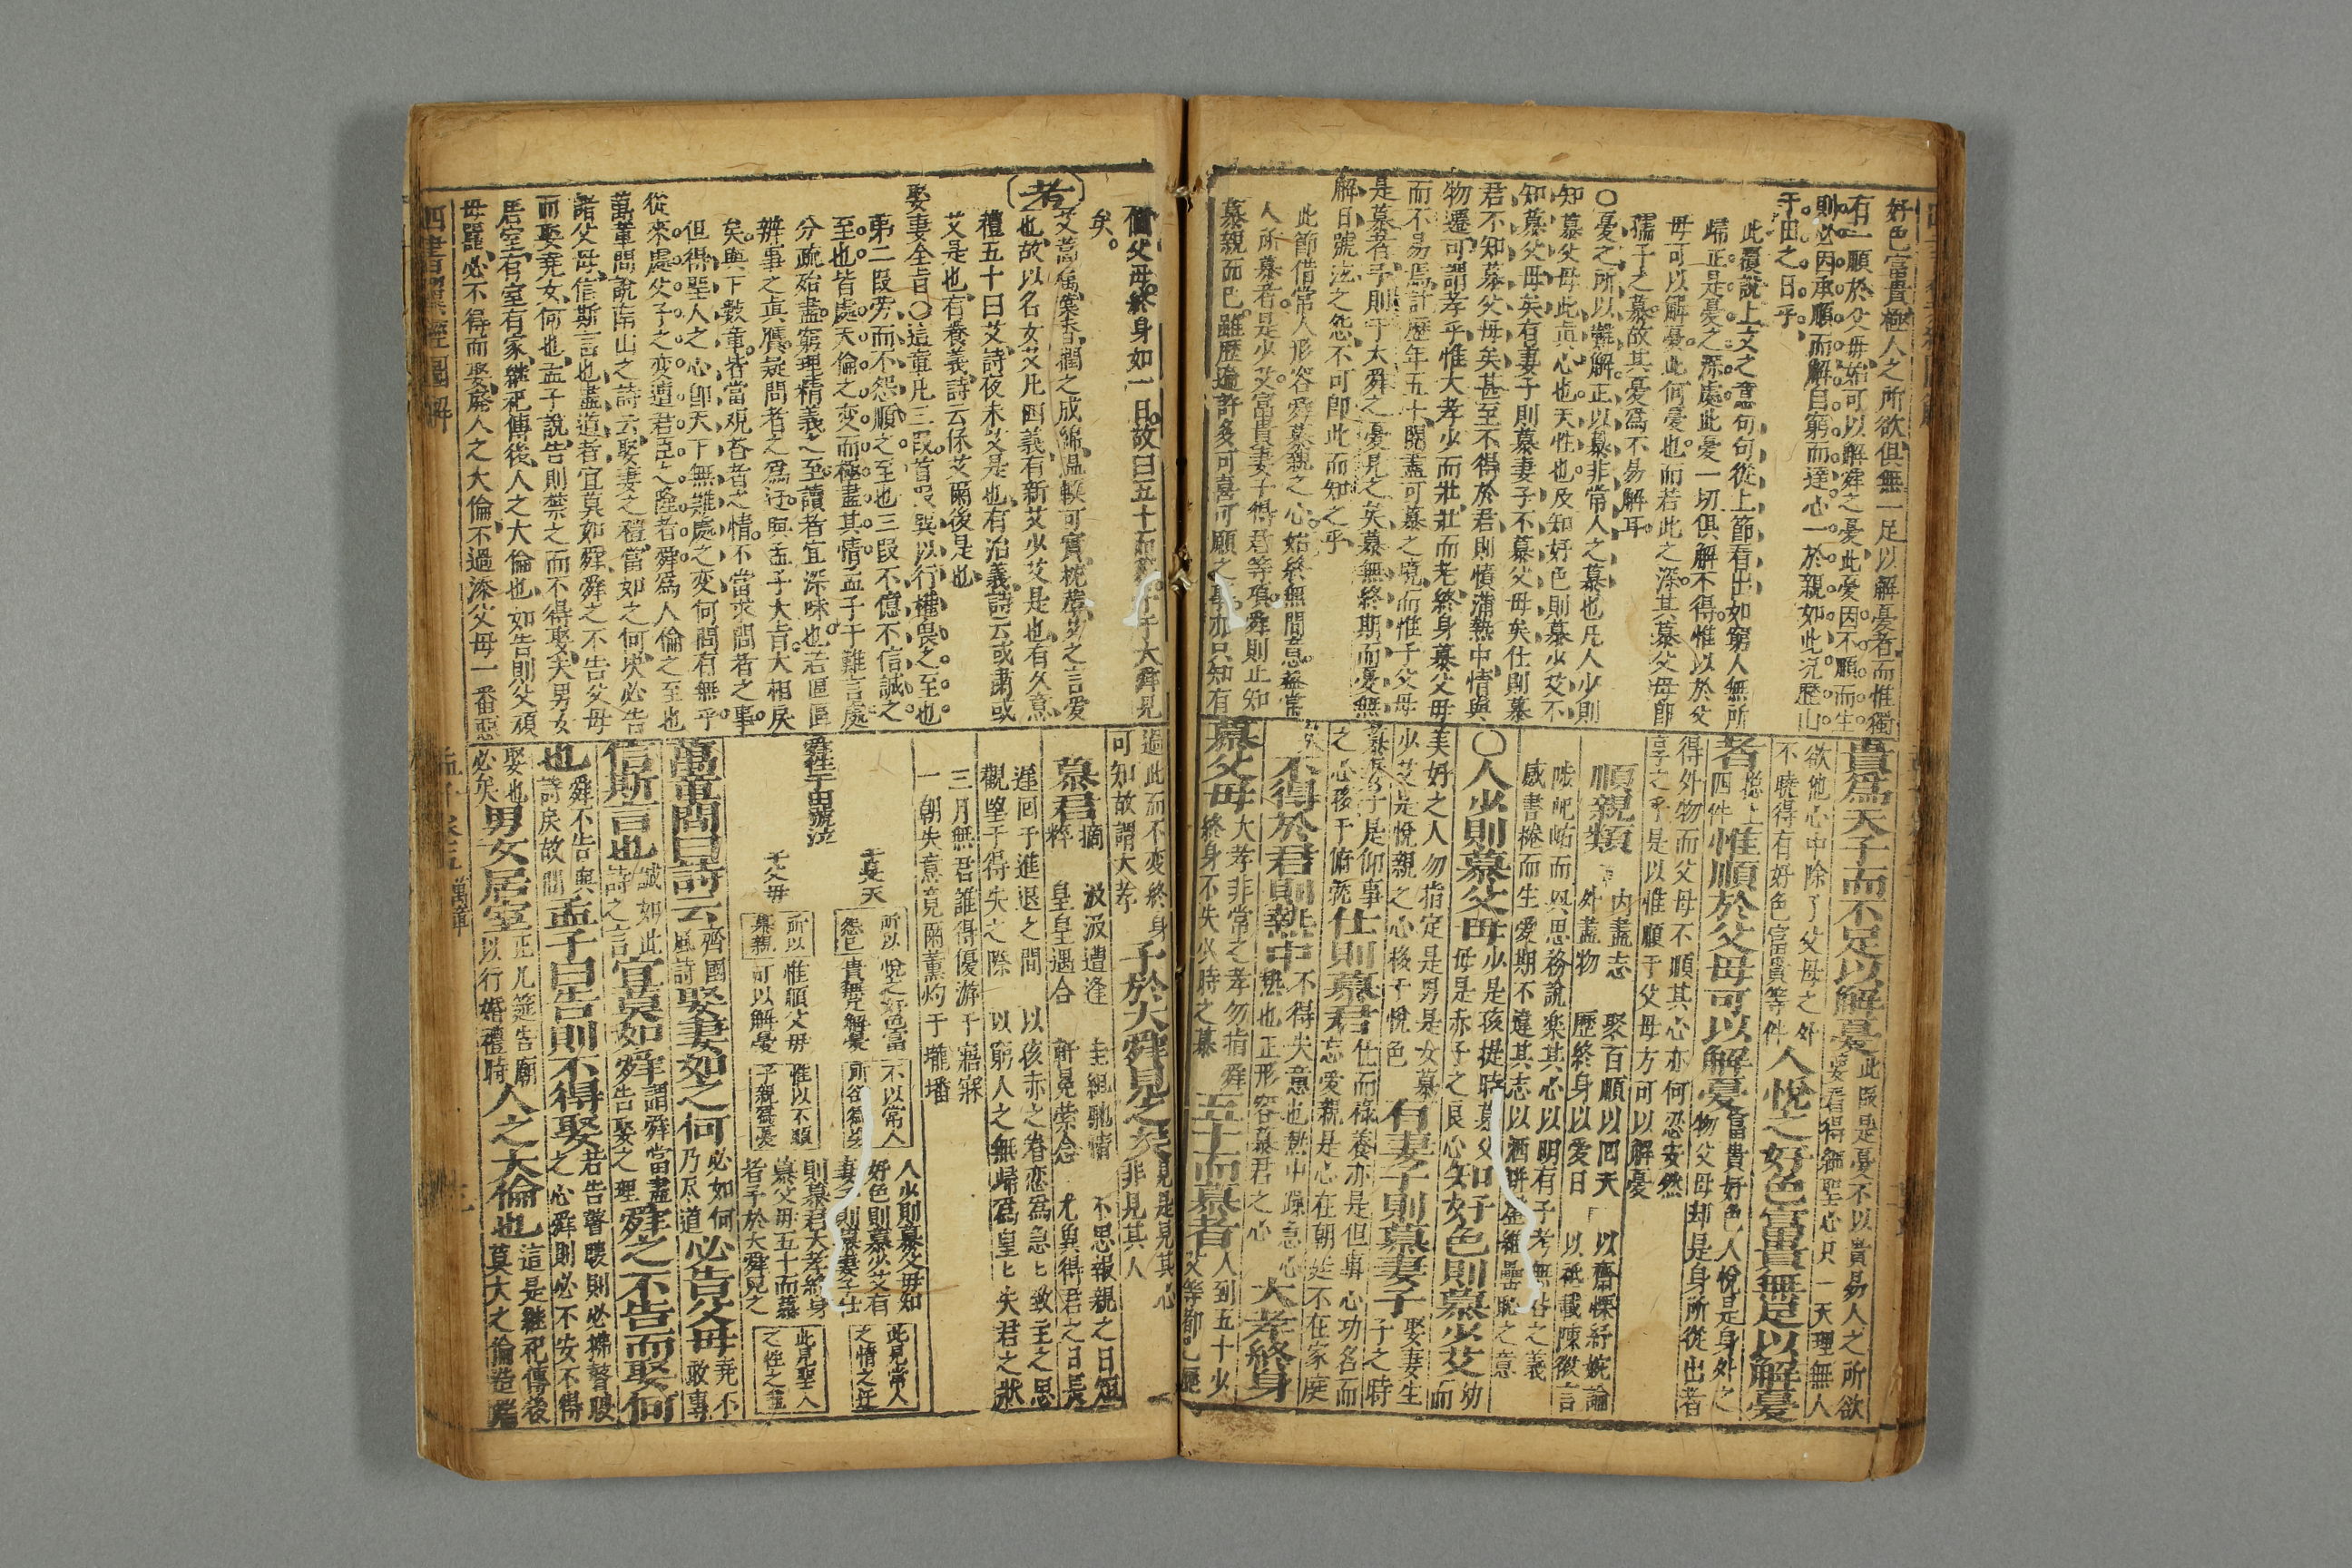 好色富貴極人之所欲俱無一足以解憂者而惟獨
有一順於父毋始可以解舜之憂此憂因不順而生
則必因承順而解自窮而達心一於親如此況歷山
于田之日乎
此覆說上文之意句句從上節看出如窮人無所
歸正是憂之深處此憂一切俱解不得惟以於父
毋可以解憂此何憂也而若此之深其慕父毋卽
孺子之慕故其憂爲不易解耳
○憂之所以難解正以慕非常人之慕也凡人少則
知慕父毋此眞心也天性也及知好色則慕少艾不
知慕父毋矣有妻子則慕妻子不慕父毋矣仕則慕
君不知慕父毋矣甚至不得於君則憤滿熱中情與
物遷可謂孝乎惟大孝少而壯壯而老終身慕父毋
而不易焉計歷年五十閱盡可慕之境而惟于父毋
是慕者予則于大舜之憂見之矣慕無終期而憂無
解日號泣之怨不可卽此而知之乎
此節借常人形容舜慕親之心始終無間意益常
人所慕者是少艾富貴妻子得君等項舜則止知
慕親而已雖歷過許多可喜可願之事亦只知有
貴爲天子而不足以解憂此叚是憂不以貴易人之所欲
欲他心中除了父毋之外要看得舜聖心只一天理無人
不曉得有好色富貴等件人悅之好色富貴無足以解憂
者總上四件惟順於父毋可以解憂富貴好色人悅是身外之物父毋却是身所從出者
得外物而父毋不順其心亦何忍安然
享之乎是以惟順于父毋方可以解憂
順親類 内盡志 外盡物 聚百順以回天 歷終身以愛日 以齋慄紓婉論 以祗載陳微言
陟屺岵而興思務說楽其心以明有子考無咎之義
感書棬而生愛期不違其志以洒缾罄維罍恥之意
○人少則慕父毋少是孩提時慕父毋是赤子之良心知好色則慕少艾幼而
美好之人勿指定是男是女慕
少艾是悅親之心移于悅色有妻子則慕妻子娶妻生子之時
慕妻子是仰事
之心移于俯畜仕則慕君仕而祿養亦是但專心功名而无忘愛親是心在朝廷不在家庭
矣不得於君則熱中不得失意也熱中躁急心熱也正形容慕君之心大孝終身
慕父毋大孝非常之孝勿指舜終身不失少時之慕五十而慕者人到五十少艾等都已歷
個父毋終身如一日故曰五十而慕予于大舜見
矣
考
艾蒿屬葉老潤之成綿温輭可實枕蓐艾之言愛
也故以名女艾凡四義有新艾少艾是也有久意
禮五十曰艾詩夜未艾是也有治義詩云或肅或
艾是也有養義詩云保艾爾後是也
娶妻全㫖○這章凡三叚首叚巽以行權畏之至也
第二叚旁而不怨順之至也三叚不億不信誠之
至也皆處天倫之变而極盡其情孟子于難言處
分疏殆盡窮理精義之至讀者宜深味也若區區
辨事之眞贋疑問者之爲迂與孟子大㫖大相戾
矣與下數章皆當观荅者之情不當求問者之事
但得聖人之心卽天下無難處之变何問有無乎
從來處父子之变遭君臣之隆者舜爲人倫之至也
萬章問說南山之詩云娶妻之禮當如之何必告
諸父毋信斯言也盡道者宜莫如舜舜之不告父毋
而娶尭女何也孟子說告則禁之而不得娶矣男女
居室有室有家継祀傳後人之大倫也如告則父頑
毋嚚必不得而娶廃人之大倫不過添父毋一番惡
過此而不变終身
可知故謂大孝予於大舜見之矣見是見其心非見其人
慕君摘粹 汲汲遭逢 皇皇遇合 圭組馳情 軒冕縈念 不思報親之日短 尤兾得君之日長
遲回于進退之間 以孩赤之眷恋爲急急致主之思
觀望于得失之際 以窮人之無歸爲皇皇失君之狀
三月無君誰得優游于寤寐
一朝失意竟爾薰灼于壠墦
舜往于田號泣
于旻天 所以怨已 悅之好色富貴無足解憂 不以常人所欲爲榮 人少則慕父毋知好色則慕少艾有妻子則慕妻子仕 此見常人之情之迁
于父毋 所以慕親 惟順父毋可以解憂 惟以不順于親爲憂 則慕君大孝終身慕父毋五十而慕者予於大舜見之 此見聖人之性之至
萬章問曰詩云齊國風詩娶妻如之何必如何乃尽道必告父毋毫不敢專
信斯言也誠如此詩之言宜莫如舜謂舜當盡告娶之理舜之不告而娶何
也舜不告與詩戾故問孟子曰告則不得娶若告瞽瞍則必拂瞽瞍之心舜則必不安不得
娶也必矣男女居室正凡筵告廟以行婚禮時人之大倫也這是継祀傳後莫大之倫造端
四書聚經圖解
孟子 卷五 萬章